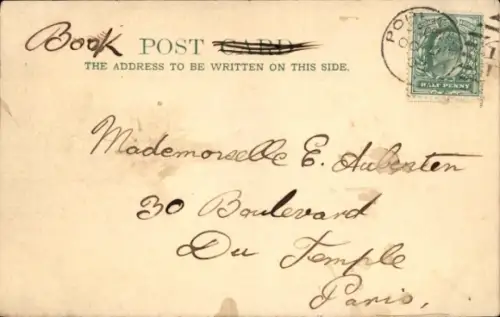 Book POST CARD
THE ADDRESS TO BE WRITTEN ON THIS SIDE.
HALF PENNY
Mademoiselle E. Aubertin
30 Boulevard
Du Temple
Paris,